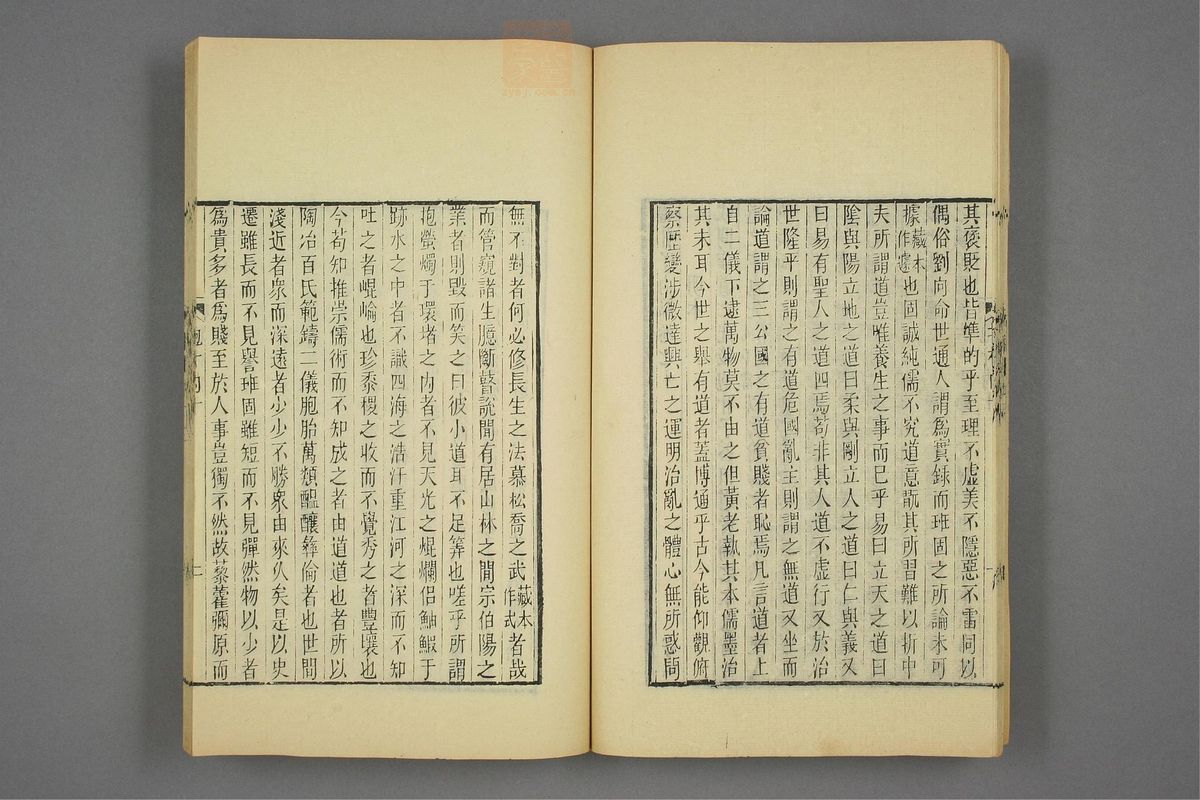 其褒貶也皆準的乎至理不虛美不隱惡不雷同以
偶俗劉向命世通人謂爲實録而班固之所論未可
據藏本作遽也固誠純儒不究道意翫其所習難以折中
夫所謂道豈唯養生之事而已乎易曰立天之道曰
陰與陽立地之道曰柔與剛立人之道曰仁與義又
曰易有聖人之道四焉苟非其人道不虛行又於治
世隆平則謂之有道危國亂主則謂之無道又坐而
論道謂之三公國之有道貧賤者恥焉凡言道者上
自二儀下逮萬物莫不由之但黃老執其本儒墨治
其末耳今世之舉有道者蓋博通乎古今能仰觀俯
察歷變涉微達興亡之運明治亂之體心無所惑問
無不對者何必修長生之法慕松喬之武藏本作式者哉
而管窺諸生臆斷瞽說聞有居山林之間宗伯陽之
業者則毀而笑之曰彼小道耳不足算也嗟乎所謂
抱螢燭于環堵之内者不見天光之焜爛侣鮋鰕于
跡水之中者不識四海之浩汗重江河之深而不知
吐之者崐崘也珍黍稷之收而不覺秀之者豐壤也
今苟知推崇儒術而不知成之者由道道也者所以
陶冶百氏範鑄二儀胞胎萬類醞釀彝倫者也世間
淺近者衆而深遠者少少不勝衆由來久矣是以史
遷雖長而不見譽班固雖短而不見彈然物以少者
爲貴多者爲賤至於人事豈獨不然故藜藿彌原而
二